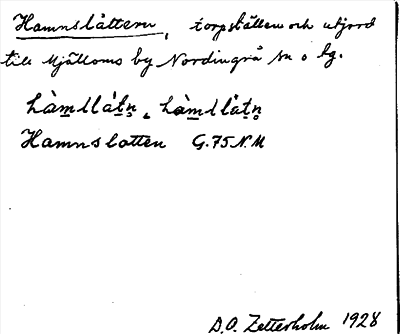 Hamnslåttern, torpställen och utjord
till Mjälloms by Nordingrå sn o hg.
hàm̲llåt̲n̥ , hàm̲llåt̲n̥
Hamnslotten G.75 N.M
D.O. Zetterholm 1928